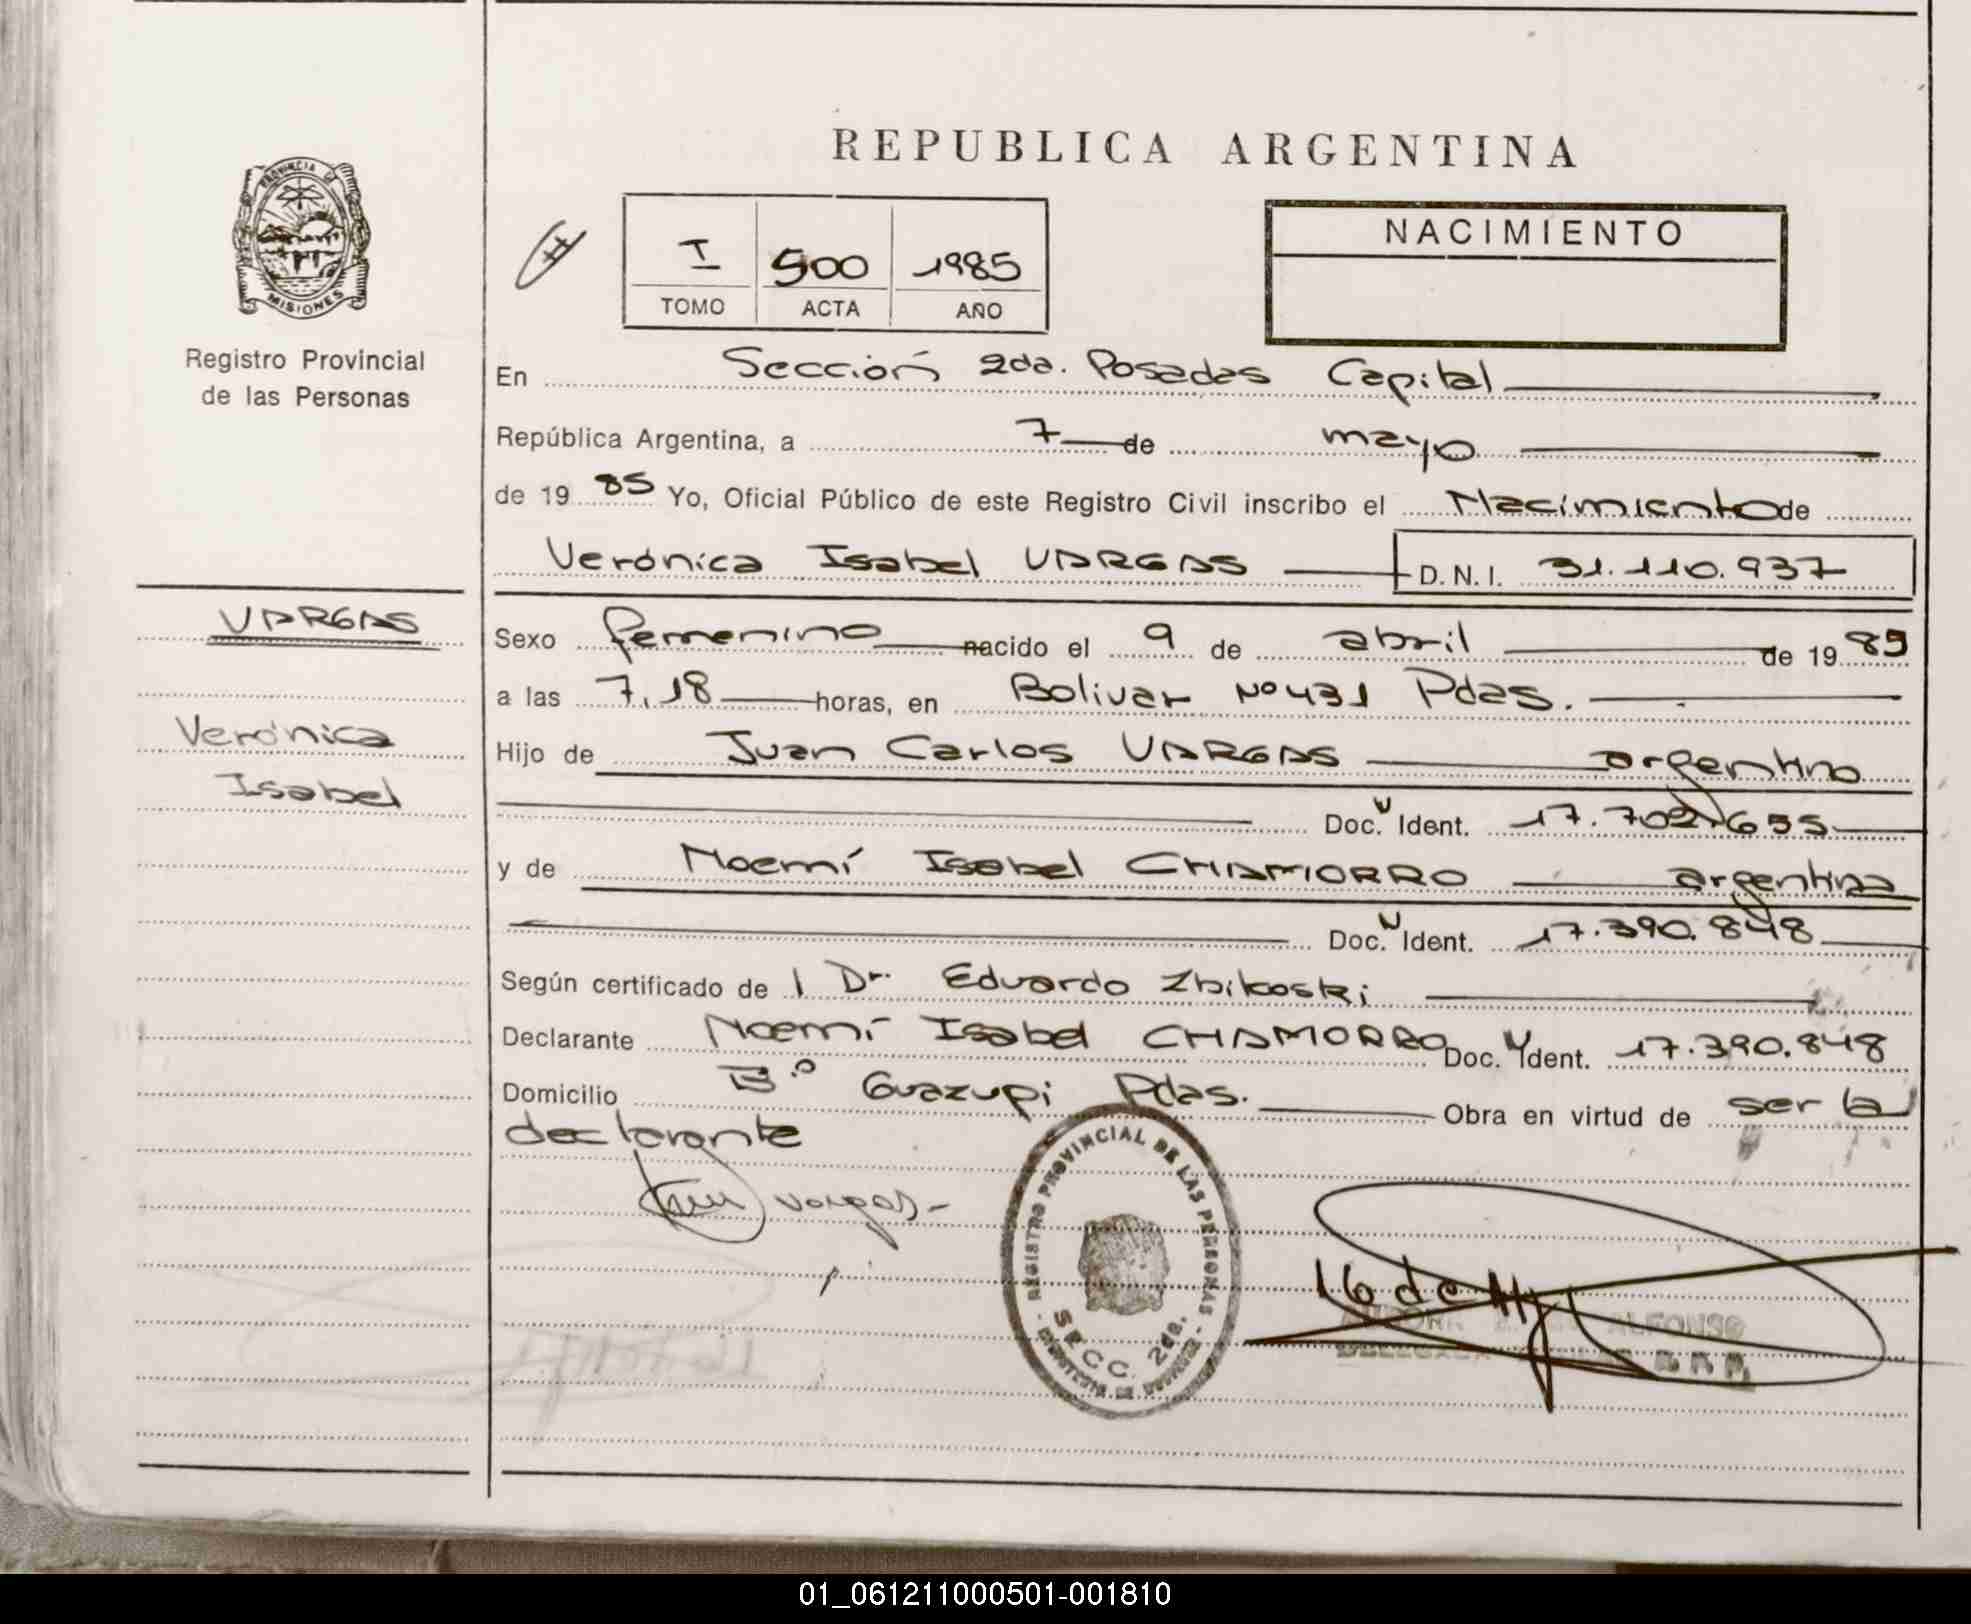 REPUBLICA ARGENTINA
PROVINCIA DE
MISIONES
Registro Provincial
de las Personas
I 500 1985
TOMO ACTA AÑO
NACIMIENTO
En Sección 2da. Posadas Capital
República Argentina, a 7 de mayo
de 19 85 Yo, Oficial Público de este Registro Civil inscribo el Nacimiento de
Verónica Isabel VARGAS D.N.I. 31.110.937
VARGAS
Verónica
Isabel
Sexo femenino nacido el 9 de abril de 19 85
a las 7,18 horas, en Bolivar Nº 431 Pdas.
Hijo de Juan Carlos VARGAS argentino
Doc. Ident. 17.702.655
y de Noemí Isabel CHAMORRO argentina
Doc. Ident. 17.390.848
Según certificado de l Dr. Eduardo Zbikoski
Declarante Noemí Isabel CHAMORRO Doc. Ident. 17.390.848
Domicilio Bº Guazupi Pdas. Obra en virtud de ser la
declarante
Vargas
REGISTRO PROVINCIAL DE LAS PERSONAS
SECC. 2da.
ALFONSO
01_061211000501-001810